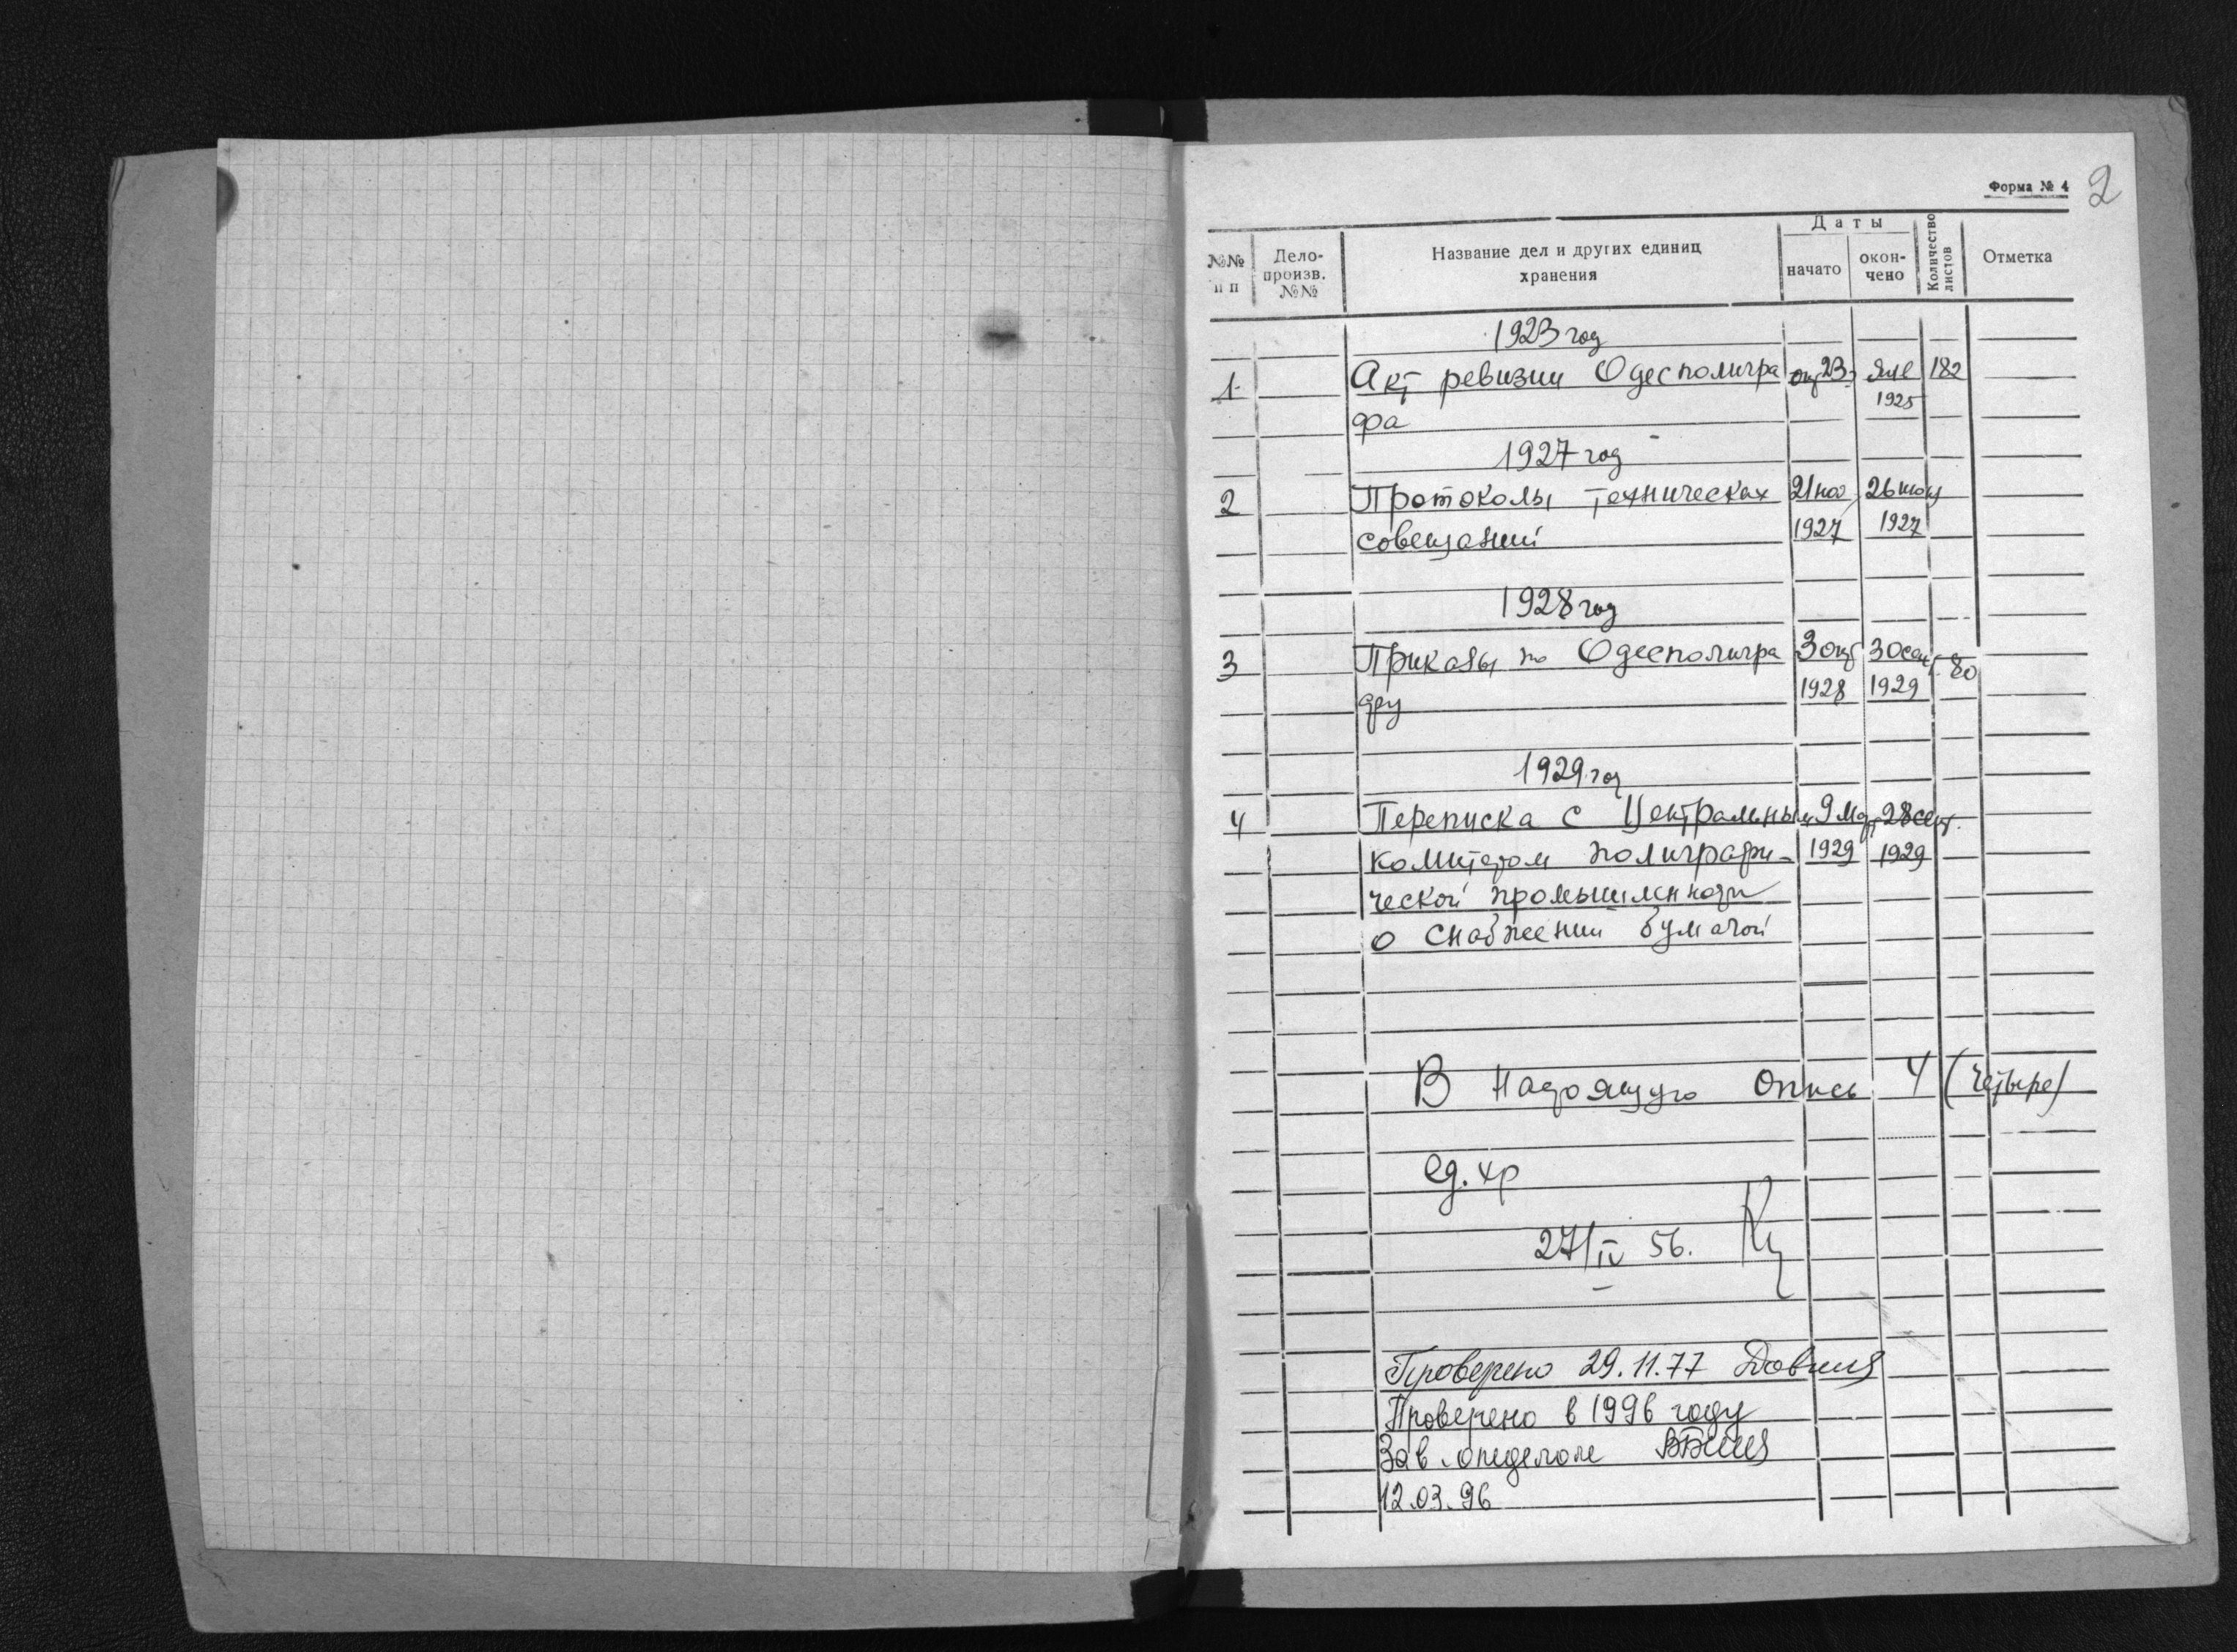 Форма № 4
2
№№ п п
Дело-произв. №№
Название дел и других единиц хранения
Даты
начато
окон-чено
Количество листов
Отметка
1923 год
1 Акт ревизии Одесполигра 23 Янв 182
фа 1925
1927 год
2 Протоколы технических 21 ноя 26 июн
совещаний 1927 1927
1928 год
3 Приказы по Одесполигра 3 окт 30 сен 80
фу 1928 1929
1929 год
4 Переписка с Центральным 9 мар 28 сент.
комитетом полиграфи- 1929 1929
ческой промышленности
о снабжении бумагой
В настоящую опись 4 (четыре)
ед. хр
27/IV 56.
Проверено 29.11.77
Проверено в 1996 году
Зав. отделом
12.03.96